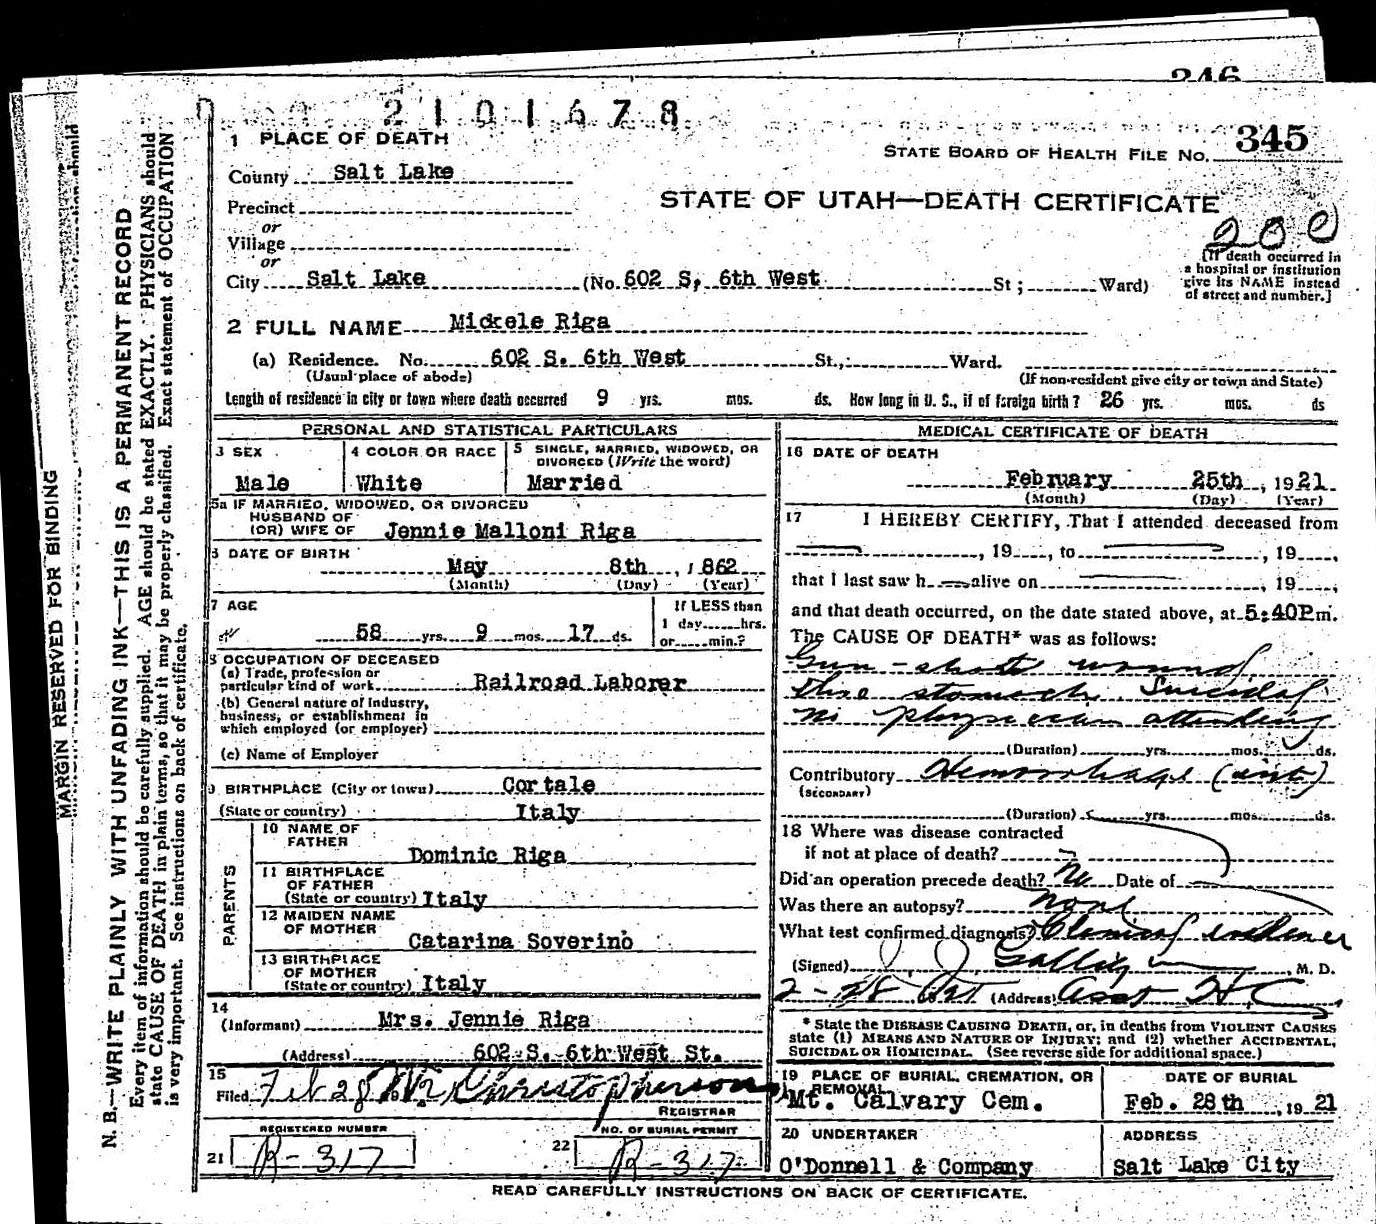 346
2101678
1 PLACE OF DEATH
STATE BOARD OF HEALTH FILE No. 345
County Salt Lake
STATE OF UTAH—DEATH CERTIFICATE
Precinct
or
Village
or
200
[If death occurred in
a hospital or institution
give its NAME instead
of street and number.]
City Salt Lake (No. 602 S, 6th West St; Ward)
2 FULL NAME Mickele Riga
(a) Residence. No. 602 S. 6th West St.; Ward.
(Usual place of abode) (If non-resident give city or town and State)
Length of residence in city or town where death occurred 9 yrs. mos. ds. How long in U. S., if of foreign birth? 26 yrs. mos. ds
PERSONAL AND STATISTICAL PARTICULARS
3 SEX
Male
4 COLOR OR RACE
White
5 SINGLE, MARRIED, WIDOWED, OR
DIVORCED (Write the word)
Married
5a IF MARRIED, WIDOWED, OR DIVORCED
HUSBAND OF
(OR) WIFE OF Jennie Malloni Riga
6 DATE OF BIRTH
May 8th, 1862
(Month) (Day) (Year)
7 AGE
58 yrs. 9 mos. 17 ds.
If LESS than
1 day hrs.
or min.?
8 OCCUPATION OF DECEASED
(a) Trade, profession or
particular kind of work Railroad Laborer
(b) General nature of Industry,
business, or establishment in
which employed (or employer)
(c) Name of Employer
9 BIRTHPLACE (City or town) Cortale
(State or country) Italy
PARENTS
10 NAME OF
FATHER
Dominic Riga
11 BIRTHPLACE
OF FATHER
(State or country) Italy
12 MAIDEN NAME
OF MOTHER
Catarina Soverino
13 BIRTHPLACE
OF MOTHER
(State or country) Italy
14
(Informant) Mrs. Jennie Riga
(Address) 602 S. 6th West St.
15
Filed Feb 28 Christopherson
REGISTRAR
REGISTERED NUMBER
21 R-317
NO. OF BURIAL PERMIT
22 R-317
MEDICAL CERTIFICATE OF DEATH
16 DATE OF DEATH
February 25th, 1921
(Month) (Day) (Year)
17 I HEREBY CERTIFY, That I attended deceased from
, 19 , to , 19 ,
that I last saw h alive on , 19 ,
and that death occurred, on the date stated above, at 5:40P.m.
The CAUSE OF DEATH* was as follows:
Gun-shot wound
thro stomach. Suicidal
no physician attending
(Duration) yrs. mos. ds.
Contributory Hemorrhage (int)
(SECONDARY)
(Duration) yrs. mos. ds.
18 Where was disease contracted
if not at place of death?
Did an operation precede death? No Date of
Was there an autopsy? none
What test confirmed diagnosis? Clinical evidence
(Signed) J. J. Galligan, M. D.
2-28 1921 (Address) Asst H.C.
* State the DISEASE CAUSING DEATH, or, in deaths from VIOLENT CAUSES
state (1) MEANS AND NATURE OF INJURY; and (2) whether ACCIDENTAL,
SUICIDAL OR HOMICIDAL. (See reverse side for additional space.)
19 PLACE OF BURIAL, CREMATION, OR
REMOVAL
Mt. Calvary Cem.
DATE OF BURIAL
Feb. 28th, 1921
20 UNDERTAKER
O'Donnell & Company
ADDRESS
Salt Lake City
READ CAREFULLY INSTRUCTIONS ON BACK OF CERTIFICATE.
MARGIN RESERVED FOR BINDING
N. B.—WRITE PLAINLY WITH UNFADING INK—THIS IS A PERMANENT RECORD
Every item of information should be carefully supplied. AGE should be stated EXACTLY. PHYSICIANS should
state CAUSE OF DEATH in plain terms, so that it may be properly classified. Exact statement of OCCUPATION
is very important. See instructions on back of certificate.